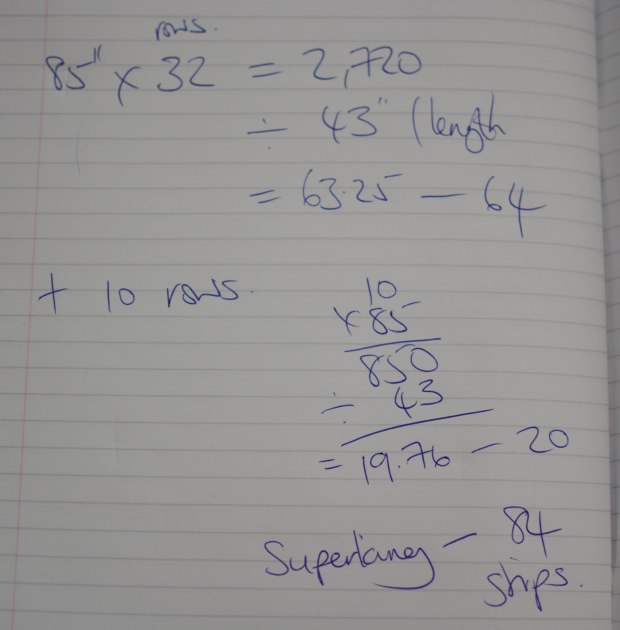 rows.
85" x 32 = 2,720
÷ 43" (length
= 63.25 – 64
+ 10 rows.
10
x 85
850
÷ 43
= 19.76 – 20
Superking – 84
strips.